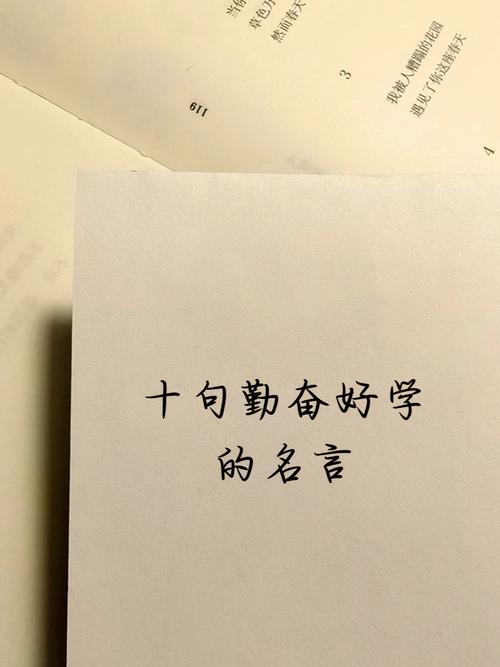 当你
草色万
然而春天
3
我被人糟蹋的花园
遇见了你这座春天
4
119
十句勤奋好学
的名言